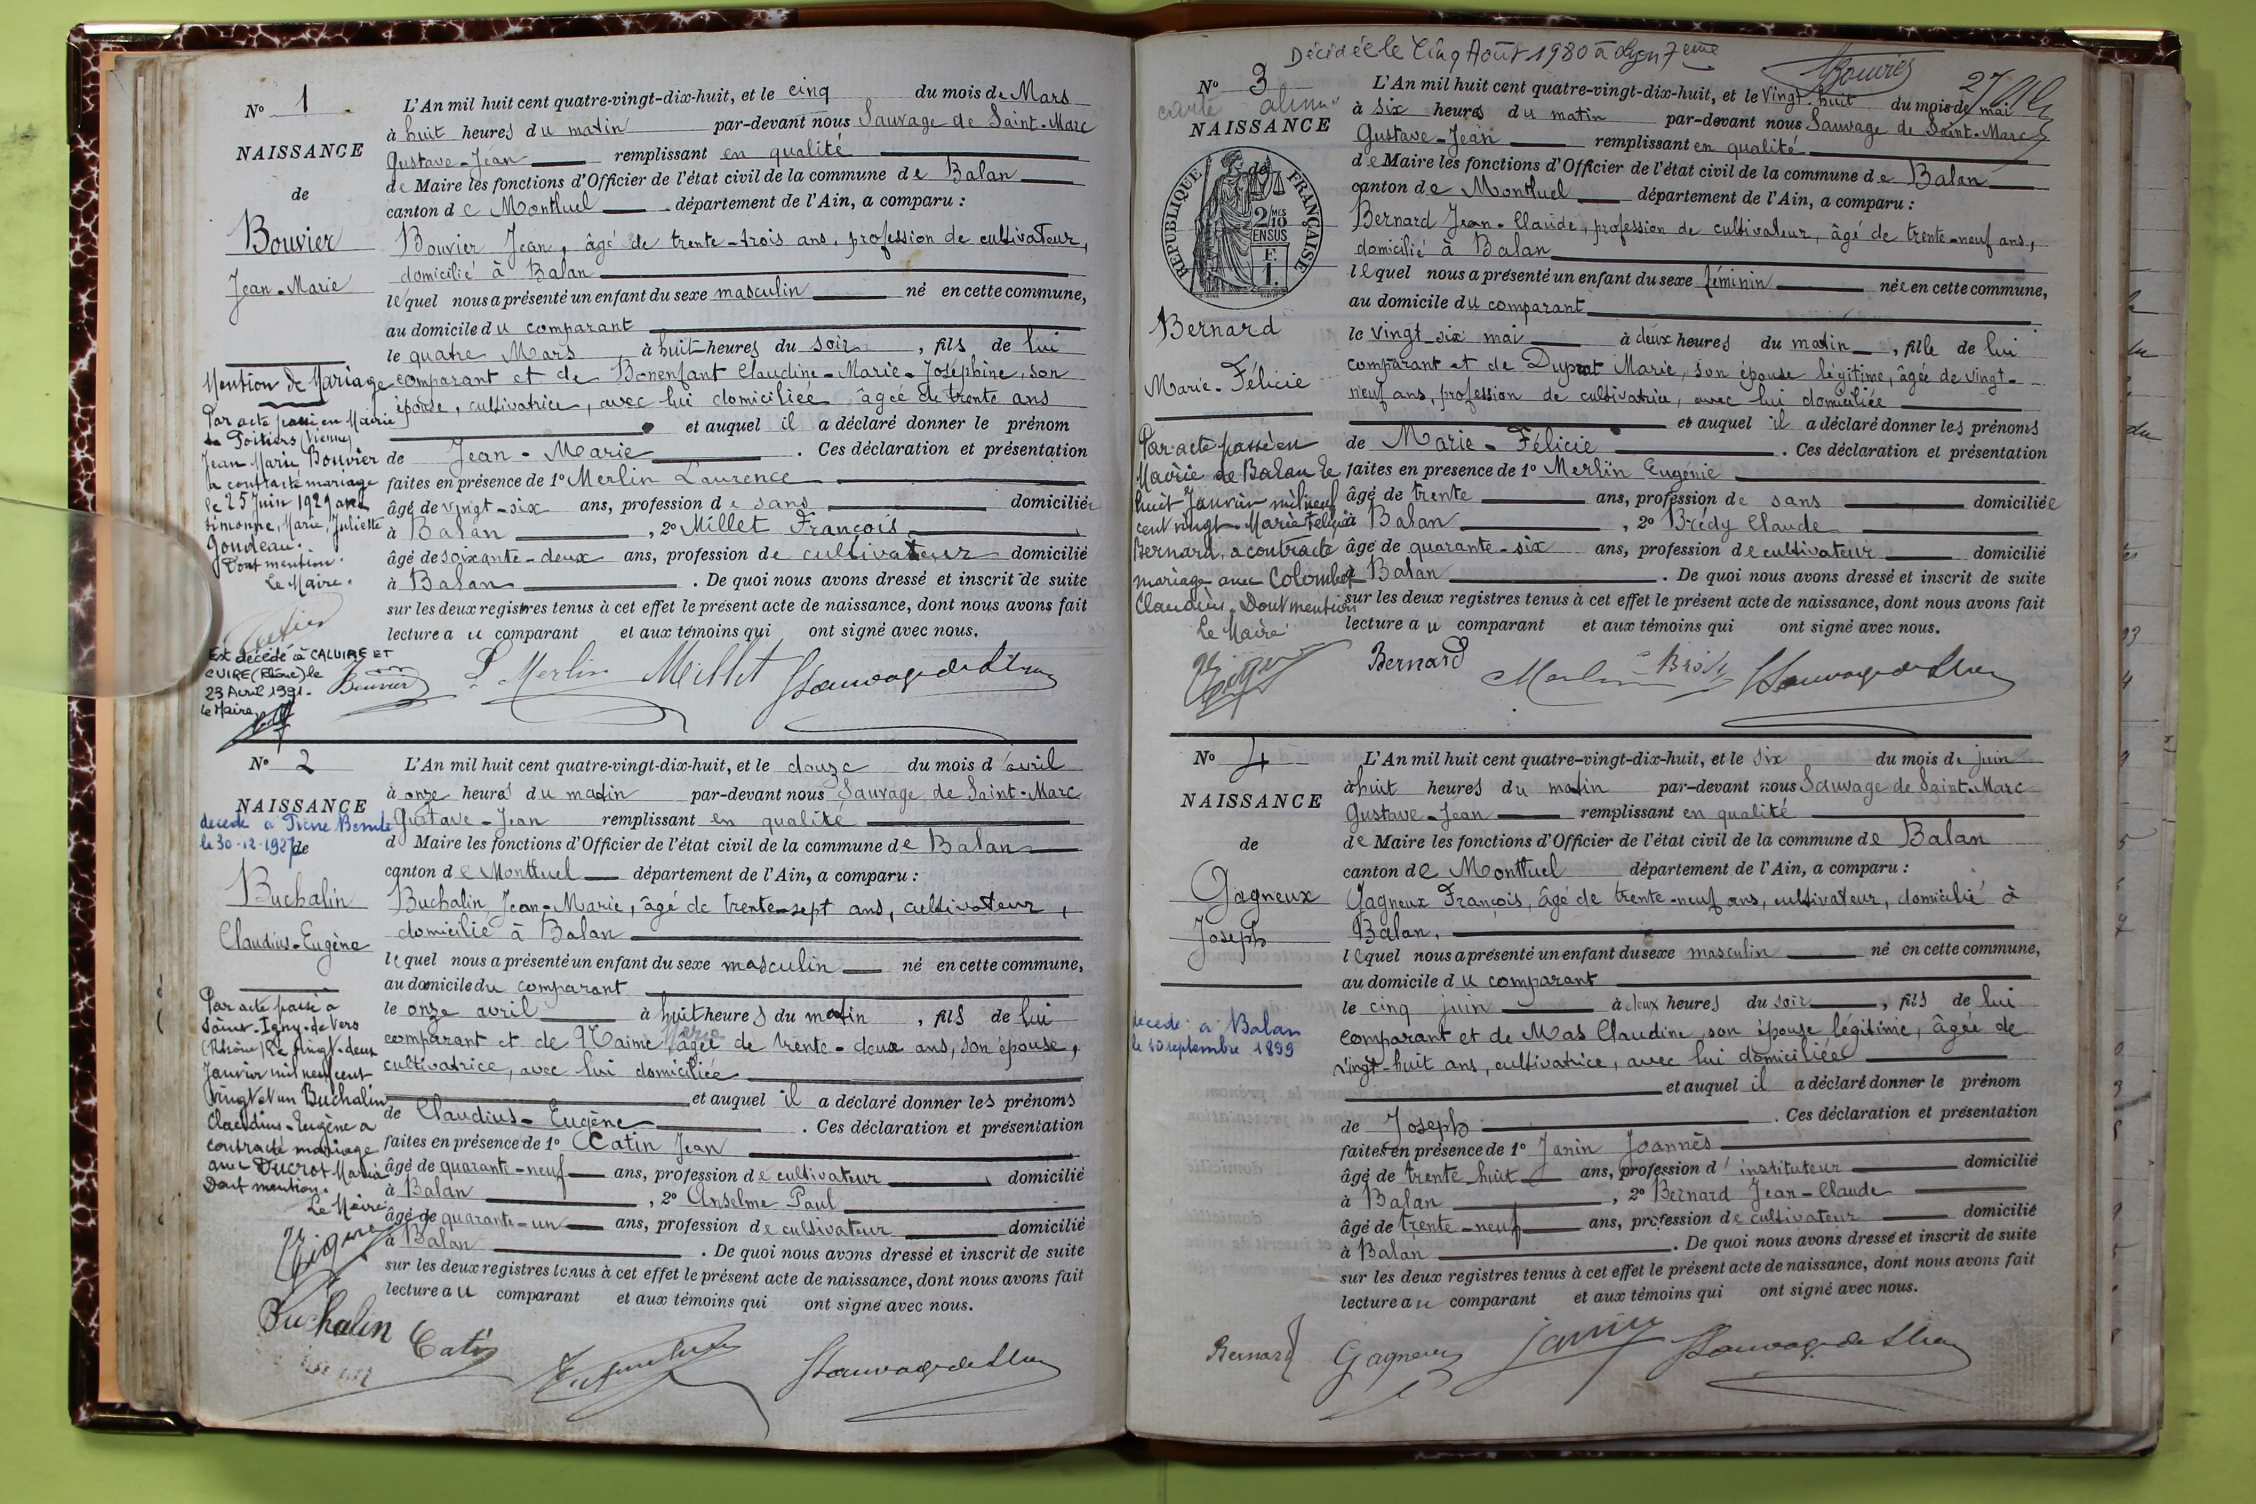 N° 1
NAISSANCE
de
Bouvier
Jean-Marie
Mention de Mariage
Par acte passé en Mairie
de Poitiers (Vienne)
Jean Marie Bouvier
a contracté mariage
le 25 Juin 1929 avec
Simonne, Marie, Juliette
Goudeau.
Dont mention.
Le Maire.
Est décédé à CALUIRE ET
CUIRE (Rhône) le
23 Avril 1991.
le Maire,
L'An mil huit cent quatre-vingt-dix-huit, et le cinq du mois de Mars
à huit heures du matin par-devant nous Sauvage de Saint-Marc
Gustave-Jean remplissant en qualité
de Maire les fonctions d'Officier de l'état civil de la commune de Balan
canton de Montluel département de l'Ain, a comparu :
Bouvier Jean, âgé de trente-trois ans, profession de cultivateur,
domicilié à Balan
lequel nous a présenté un enfant du sexe masculin né en cette commune,
au domicile du comparant
le quatre Mars à huit heures du soir, fils de lui
comparant et de Bonenfant Claudine-Marie-Joséphine, son
épouse, cultivatrice, avec lui domiciliée âgée de trente ans
et auquel il a déclaré donner le prénom
de Jean-Marie. Ces déclaration et présentation
faites en présence de 1° Merlin Laurence
âgé de vingt-six ans, profession de sans domiciliée
à Balan, 2° Millet François
âgé de soixante-deux ans, profession de cultivateur domicilié
à Balan. De quoi nous avons dressé et inscrit de suite
sur les deux registres tenus à cet effet le présent acte de naissance, dont nous avons fait
lecture au comparant et aux témoins qui ont signé avec nous.
Bouvier L. Merlin Millet Sauvage de St Marc
N° 2
NAISSANCE
décédé à
le 30-12-1927
de
Buchalin
Claudius-Eugène
Par acte passé à
Saint-Igny-de-Vers
(Rhône) le vingt-deux
Janvier mil neuf cent
vingt et un Buchalin
Claudius-Eugène a
contracté mariage
avec Ducrot Maria
Dont mention.
Le Maire
L'An mil huit cent quatre-vingt-dix-huit, et le douze du mois d'avril
à onze heures du matin par-devant nous Sauvage de Saint-Marc
Gustave-Jean remplissant en qualité
d Maire les fonctions d'Officier de l'état civil de la commune de Balan
canton de Montluel département de l'Ain, a comparu :
Buchalin Jean-Marie, âgé de trente-sept ans, cultivateur,
domicilié à Balan
lequel nous a présenté un enfant du sexe masculin né en cette commune,
au domicile du comparant
le onze avril à huit heures du matin, fils de lui
comparant et de Maine Marie âgée de trente-deux ans, son épouse,
cultivatrice, avec lui domiciliée
et auquel il a déclaré donner les prénoms
de Claudius-Eugène. Ces déclaration et présentation
faites en présence de 1° Catin Jean
âgé de quarante-neuf ans, profession de cultivateur, domicilié
à Balan, 2° Anselme Paul
âgé de quarante-un ans, profession de cultivateur domicilié
à Balan. De quoi nous avons dressé et inscrit de suite
sur les deux registres tenus à cet effet le présent acte de naissance, dont nous avons fait
lecture au comparant et aux témoins qui ont signé avec nous.
Buchalin Catin Sauvage de St Marc
Décédée le Cinq Août 1980 à Lyon 7eme
Bouvier
N° 3
carte
NAISSANCE
de
RÉPUBLIQUE FRANÇAISE
2/10 MES
EN SUS
F.
1.
Bernard
Marie-Félicie
Par acte passé en
Mairie de Balan le
huit Janvier mil neuf
cent vingt Marie Félicie
Bernard, a contracté
mariage avec Colombet
Claudius. Dont mention
Le Maire
L'An mil huit cent quatre-vingt-dix-huit, et le vingt-huit du mois de mai
à six heures du matin par-devant nous Sauvage de Saint-Marc
Gustave-Jean remplissant en qualité
de Maire les fonctions d'Officier de l'état civil de la commune de Balan
canton de Montluel département de l'Ain, a comparu :
Bernard Jean-Claude, profession de cultivateur, âgé de trente-neuf ans,
domicilié à Balan
lequel nous a présenté un enfant du sexe féminin née en cette commune,
au domicile du comparant
le vingt-six mai à deux heures du matin, fille de lui
comparant et de Duprat Marie, son épouse légitime, âgée de vingt-
neuf ans, profession de cultivatrice, avec lui domiciliée
et auquel il a déclaré donner les prénoms
de Marie-Félicie. Ces déclaration et présentation
faites en presence de 1° Merlin Eugénie
âgé de trente ans, profession de sans domiciliée
à Balan, 2° Brédy Claude
âgé de quarante-six ans, profession de cultivateur domicilié
à Balan. De quoi nous avons dressé et inscrit de suite
sur les deux registres tenus à cet effet le présent acte de naissance, dont nous avons fait
lecture au comparant et aux témoins qui ont signé avec nous.
Bernard Merlin Brédy Sauvage de St Marc
N° 4
NAISSANCE
de
Gagneux
Joseph
décédé à Balan
le 10 septembre 1899
L'An mil huit cent quatre-vingt-dix-huit, et le six du mois de juin
à huit heures du matin par-devant nous Sauvage de Saint-Marc
Gustave-Jean remplissant en qualité
de Maire les fonctions d'Officier de l'état civil de la commune de Balan
canton de Montluel département de l'Ain, a comparu :
Gagneux François, âgé de trente-neuf ans, cultivateur, domicilié à
Balan.
lequel nous a présenté un enfant du sexe masculin né en cette commune,
au domicile du comparant
le cinq juin à deux heures du soir, fils de lui
comparant et de Mas Claudine, son épouse légitime, âgée de
vingt-huit ans, cultivatrice, avec lui domiciliée
et auquel il a déclaré donner le prénom
de Joseph. Ces déclaration et présentation
faites en présence de 1° Janin Joannès
âgé de trente-huit ans, profession d'instituteur domicilié
à Balan, 2° Bernard Jean-Claude
âgé de trente-neuf ans, profession de cultivateur domicilié
à Balan. De quoi nous avons dressé et inscrit de suite
sur les deux registres tenus à cet effet le présent acte de naissance, dont nous avons fait
lecture au comparant et aux témoins qui ont signé avec nous.
Bernard Gagneux Janin Sauvage de St Marc